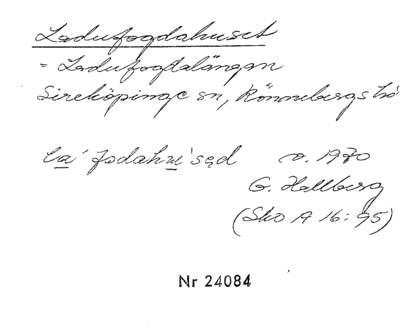 Ladufogdahuset
= Ladufogdalängan
Sireköpinge sn, Rönnebergs hd
la´fodahu´sed o. 1970
G. Hallberg
(Sko A 16:95)
Nr 24084